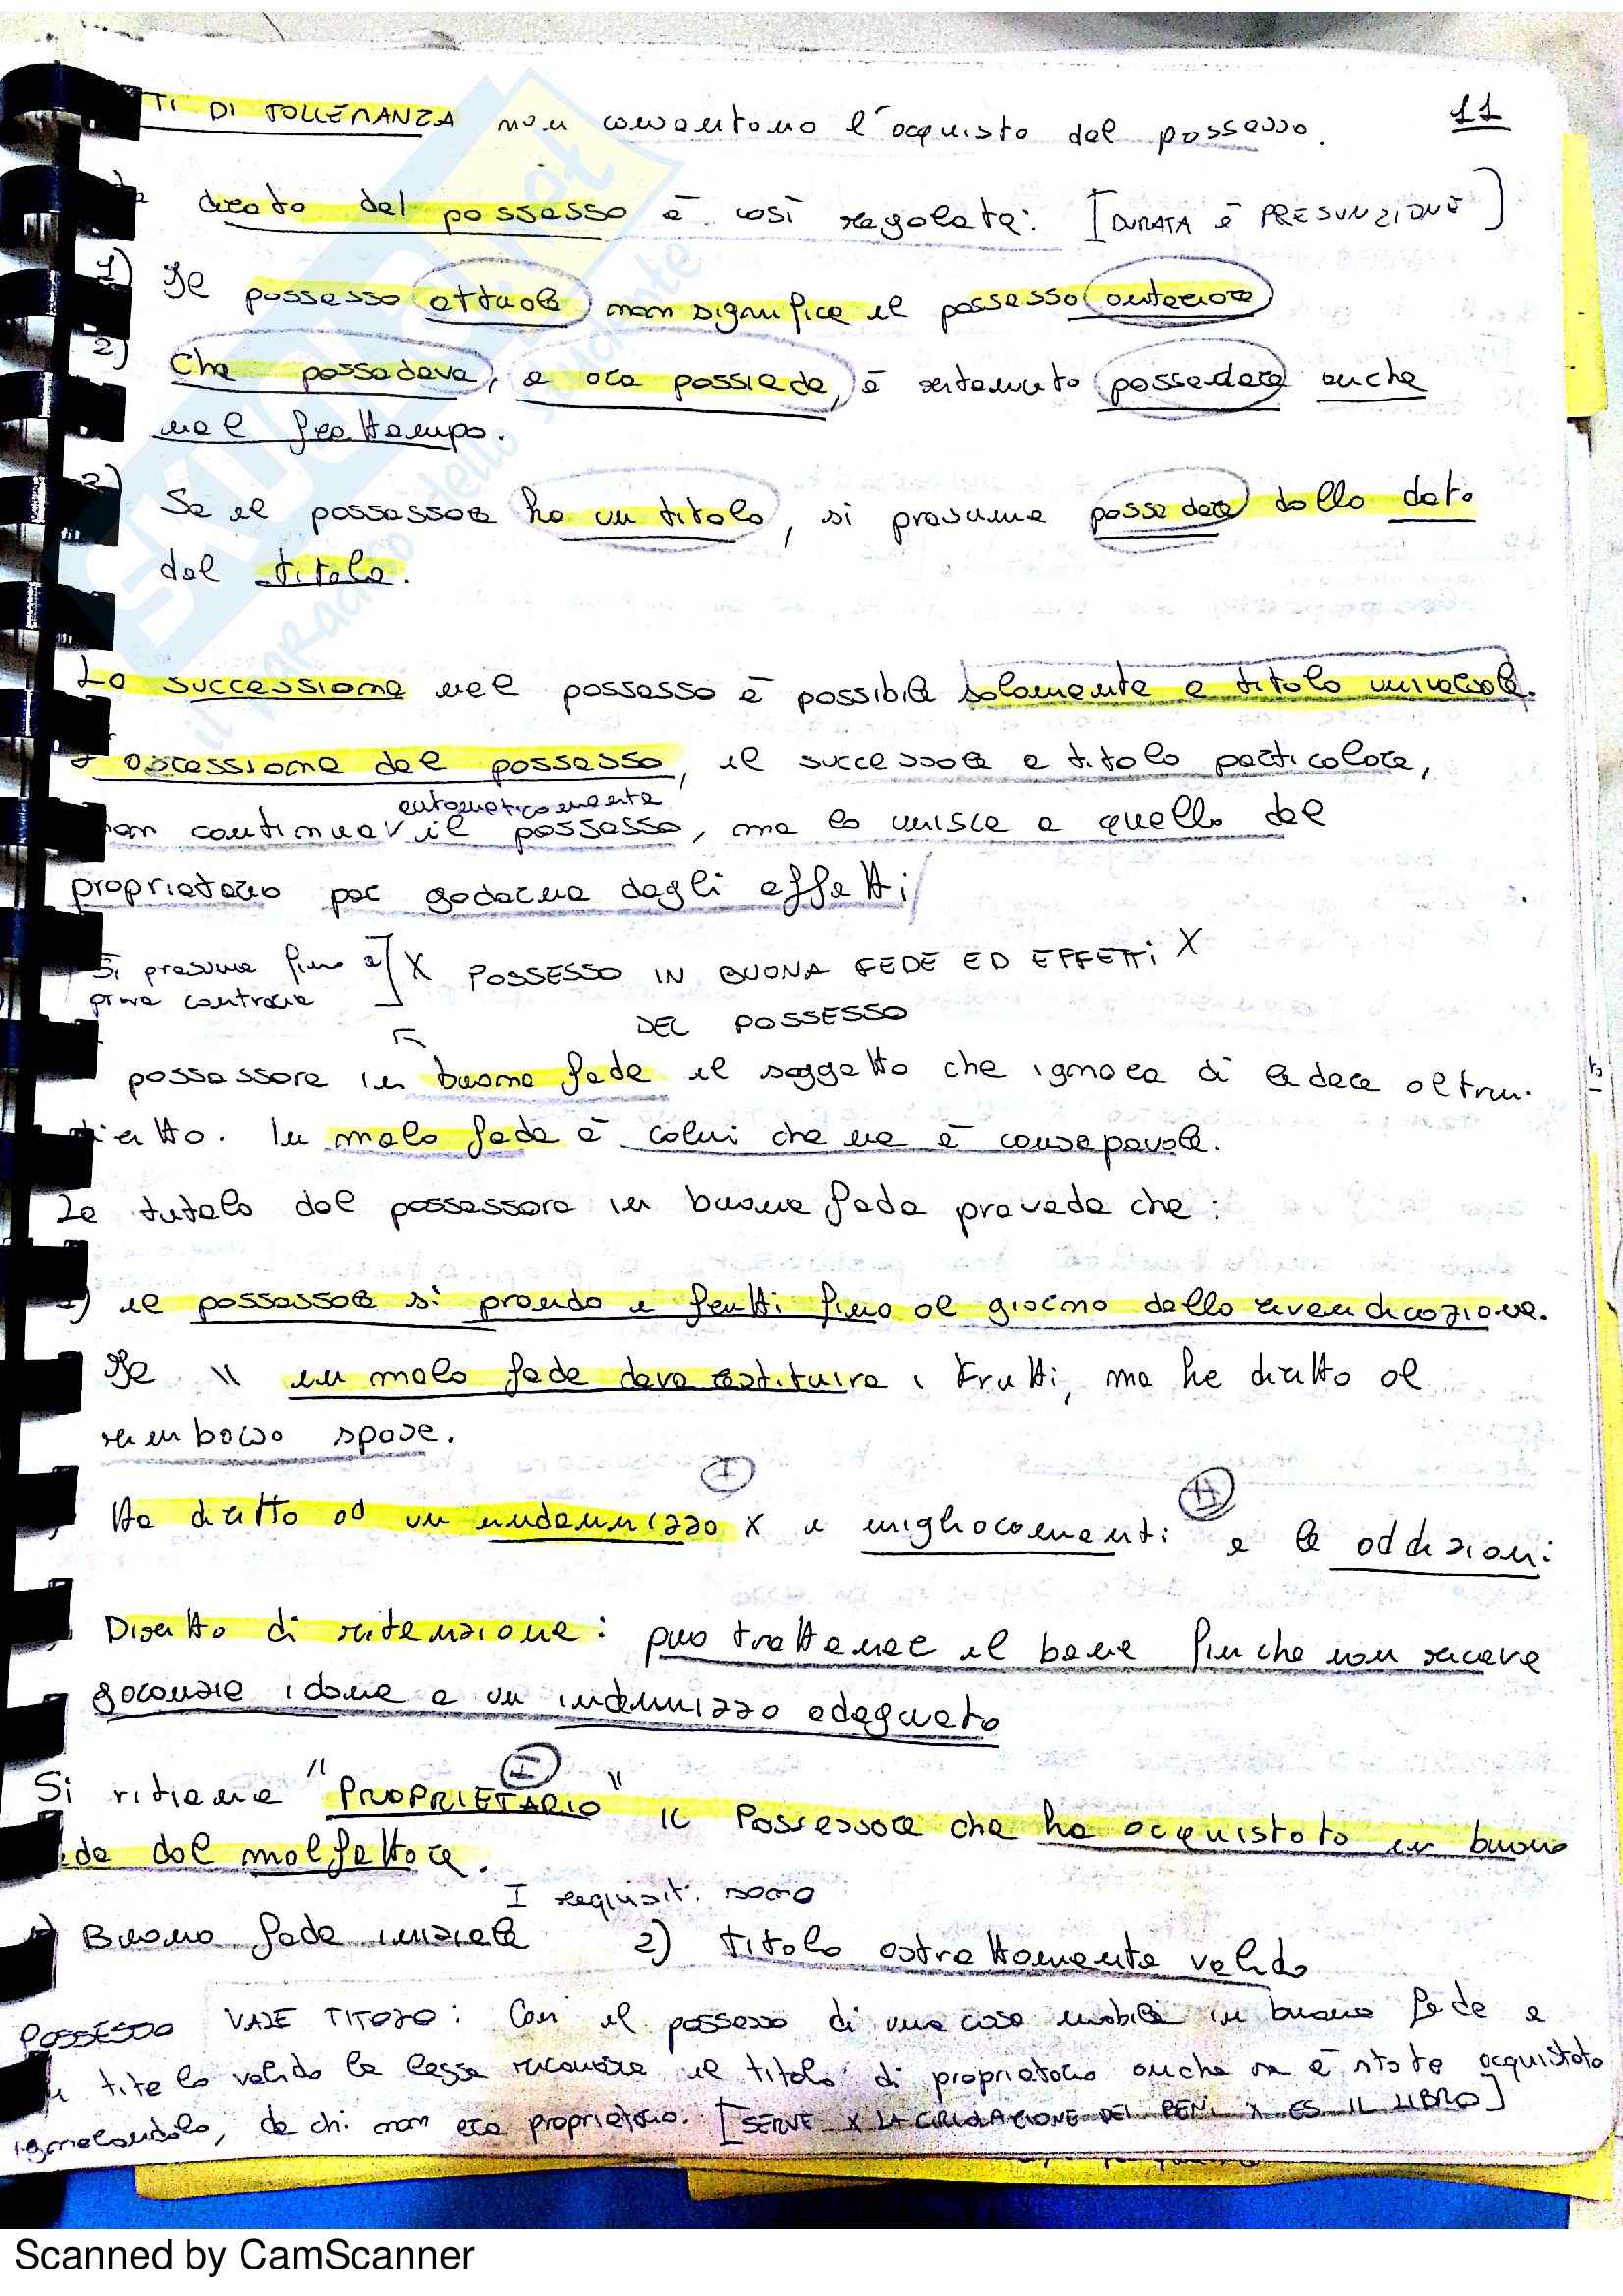 TI DI TOLLERANZA non consentono l'acquisto del possesso. 11
durata del possesso è così regolata: [DURATA È PRESUNZIONE]
1) Il possesso attuale non significa il possesso anteriore
2) Chi possedeva, e ora possiede, è possedere anche
nel frattempo.
3) Se il possessore ha un titolo, si presume possedere dalla data
del titolo.
La successione nel possesso è possibile solamente a titolo universale.
accessione del possesso, il successore a titolo particolare,
automaticamente
non continua il possesso, ma lo unisce a quello del
proprietario per goderne degli effetti
Si presume fino a] X POSSESSO IN BUONA FEDE ED EFFETTI X
prova contraria
DEL POSSESSO
possessore in buona fede il soggetto che ignora di ledere altrui
diritto. In mala fede è colui che ne è consapevole.
La tutela del possessore in buona fede prevede che:
) il possessore si prende i frutti fino al giorno della rivendicazione.
Se " in mala fede deve restituire i frutti, ma ha diritto al
rimborso spese.
I II
Ha diritto ad un indennizzo X i miglioramenti e le addizioni
Diritto di ritenzione: può trattenere il bene finché non riceve
garanzie idonee e un indennizzo adeguato
I
Si ritiene "PROPRIETARIO" il Possessore che ha acquistato in buona
fede dal malfattore.
I requisiti sono
1) Buona fede iniziale 2) titolo astrattamente valido
POSSESSO VALE TITOLO: Con il possesso di una cosa mobile in buona fede e
titolo valido la legge riconosce il titolo di proprietario anche se è stato acquistato
ignorandolo, da chi non era proprietario. [SERVE X LA CIRCOLAZIONE DEI BENI X ES IL LIBRO]
Scanned by CamScanner